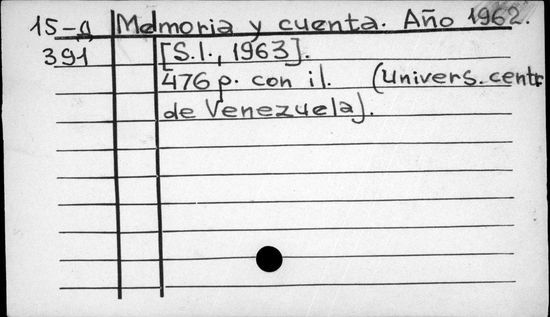 15-a Memoria y cuenta. Año 1962.
391 [S.l., 1963].
476 p. con il. (Univers. centr
de Venezuela).